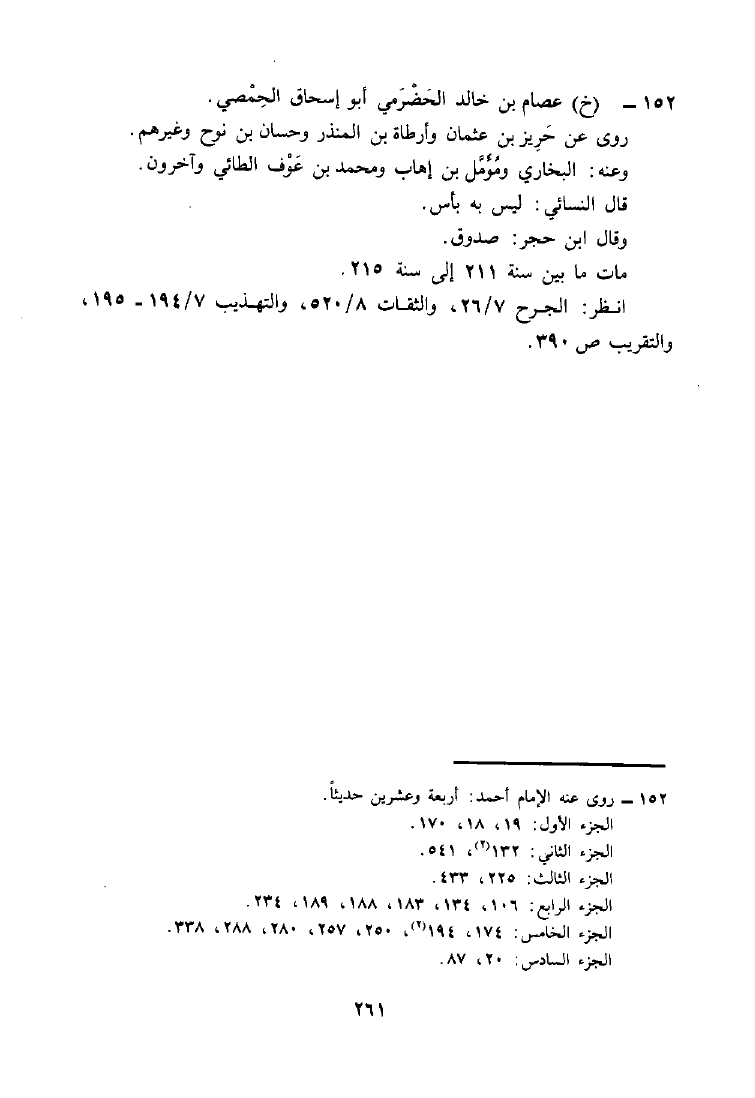 ١٥٢ ــ (خ) عصام بن خالد الحَضْرَمي أبو إسحاق الحِمْصي.
روى عن حَرِيز بن عثمان وأرطاة بن المنذر وحسان بن نوح وغيرهم.
وعنه: البخاري ومُؤَمَّل بن إهاب ومحمد بن عَوْف الطائي وآخرون.
قال النسائي: ليس به بأس.
وقال ابن حجر: صدوق.
مات ما بين سنة ٢١١ إلى سنة ٢١٥.
انظر: الجرح ٢٦/٧، والثقات ٥٢٠/٨، والتهذيب ١٩٤/٧ - ١٩٥،
والتقريب ص ٣٩٠.
١٥٢ ــ روى عنه الإمام أحمد: أربعة وعشرين حديثاً.
الجزء الأول: ١٩، ١٨، ١٧٠.
الجزء الثاني: ١٣٢(٢)، ٥٤١.
الجزء الثالث: ٢٢٥، ٤٣٣.
الجزء الرابع: ١٠٦، ١٣٤، ١٨٣، ١٨٨، ١٨٩، ٢٣٤.
الجزء الخامس: ١٧٤، ١٩٤(٢)، ٢٥٠، ٢٥٧، ٢٨٠، ٢٨٨، ٣٣٨.
الجزء السادس: ٢٠، ٨٧.
٢٦١